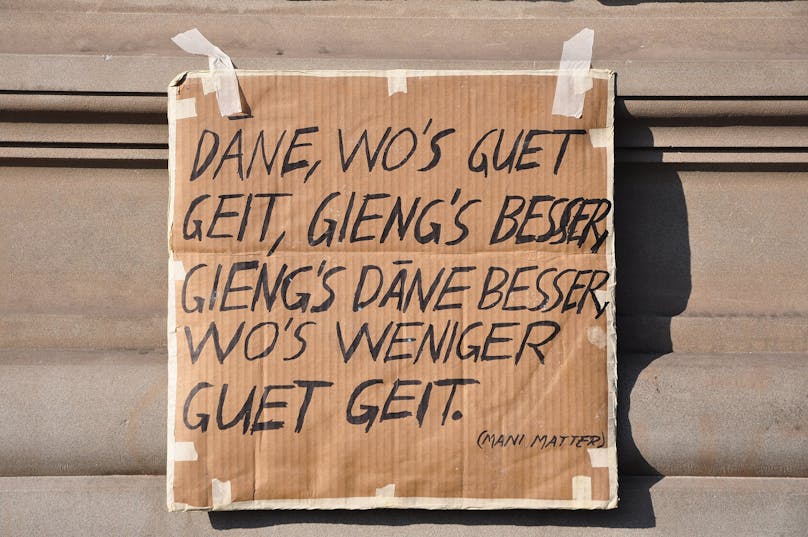 DÄNE, WO'S GUET
GEIT, GIENG'S BESSER,
GIENG'S DÄNE BESSER,
WO'S WENIGER
GUET GEIT.
(MANI MATTER)